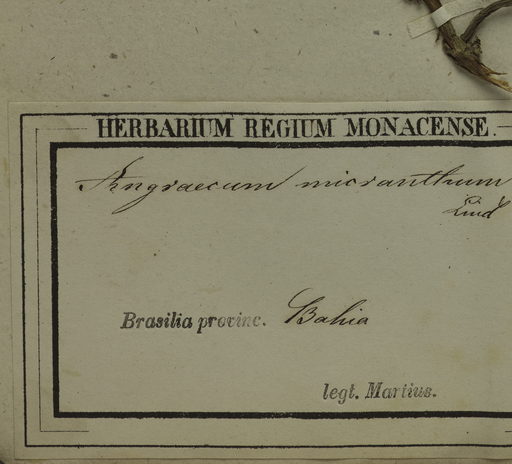 HERBARIUM REGIUM MONACENSE.
Angraecum micranthum
Lind
Brasilia provinc. Bahia
legt. Martius.